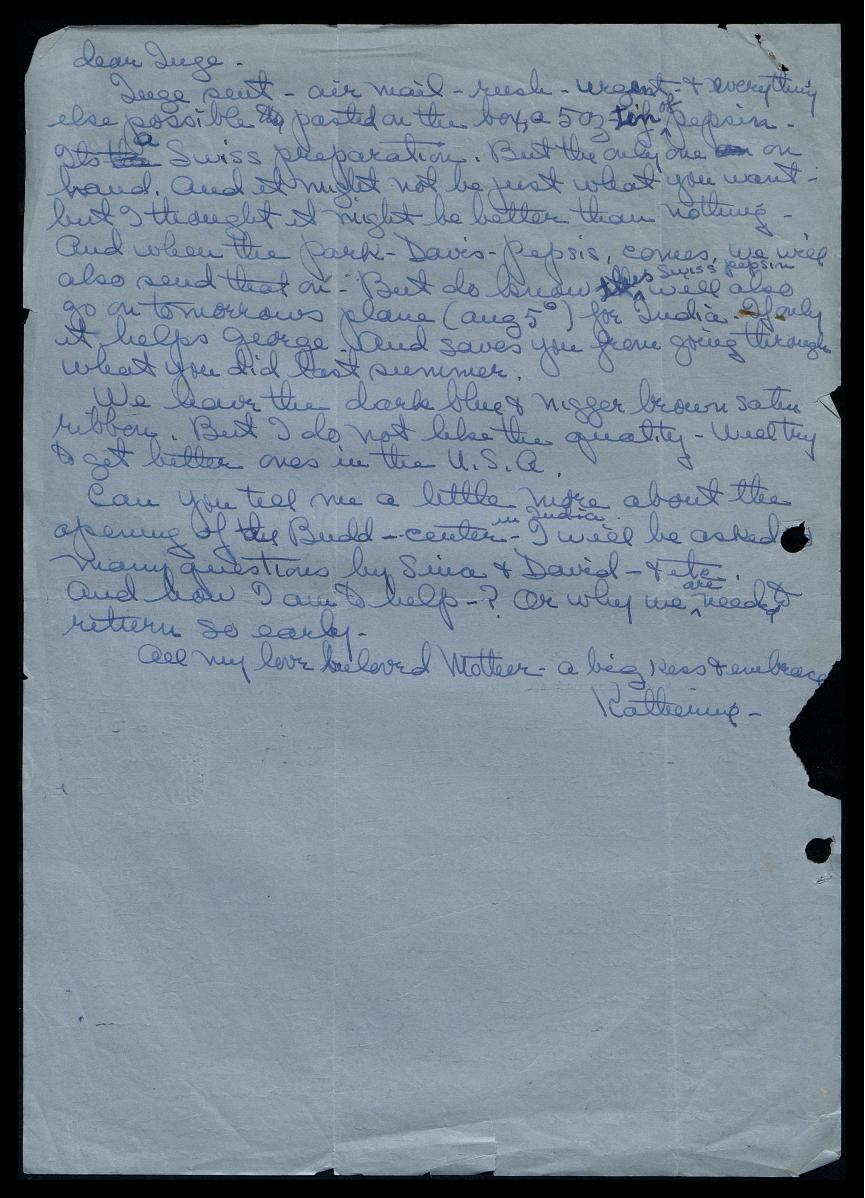 dear Inge -
Inge sent - air mail - rush - urgent - & everything
else possible pasted on the box, a 5 oz tin of pepsin -
Its a Swiss preparation. But the only one on
hand. And it might not be just what you want -
but I thought it might be better than nothing -
And when the park-Davis-pepsis, comes, we will
also send that on - But do know this Swiss pepsin will also
go on tomorrows plane (aug 5º) for India. If only
it helps George. And saves you from going through
what you did last summer.
We have the dark blue & nigger brown satin
ribbon. But I do not like the quality - Will try
to get better ones in the U.S.A.
Can you tell me a little more about the
opening of the Budd - center - in India. I will be asked
many questions by Sina & David - & etc.
And how I am to help -? Or why we are need to
return so early -
All my love beloved Mother - a big kiss & embrace
Katherine -